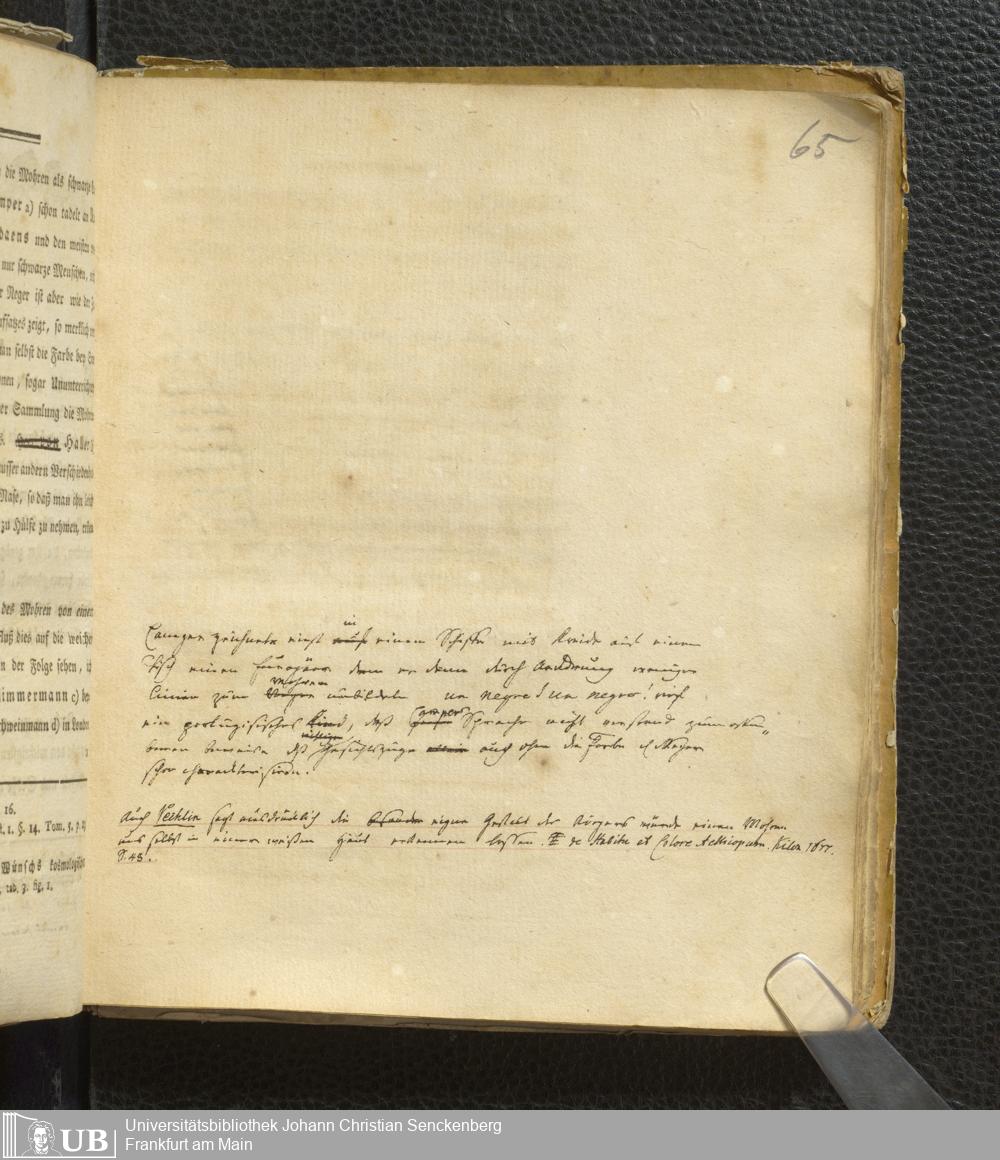 65
die Mohren als schwarze
mper a) schon tadelt an
daens und den meisten
nur schwarze Menschen,
r Neger ist aber wie
ufsatzes zeigt, so merklich
an selbst die Farbe bey
nen, sogar Ununterrichte
er Sammlung die Mohre
Haller
ausser andern Verschiedenh
Nase, so daß man ihn leicht
zu Hülfe zu nehmen,
des Mohren von einem
luß dies auf die weiche
n der Folge sehen,
immermann c) be
chweinmann d) in London
16.
t. 1. §. 14. Tom. 5. p.
Wünschs kosmologische
tab. 3. fig. 1.
Camper zeichnete einst in einem Schiffe mit Kreide auf einen
Tisch einen Europäer den er denn durch Aenderung weniger
Linien zum Mohren umbildete un negro! un negro! rief
ein portugisisches Kind, daß Campers Sprache nicht verstand zum
baren Beweise daß Gesichtszüge auch ohne die Farbe
schon charackterisiren.
Auch Pechlin sagt ausdrücklich die eigne Gestalt des Körpers würde einen Mohren
uns selbst in einer weißen Haut erkennen lassen. de Habitu et Colore Aethiopum. Kilon 1677.
P. 48.
UB
Universitätsbibliothek Johann Christian Senckenberg
Frankfurt am Main